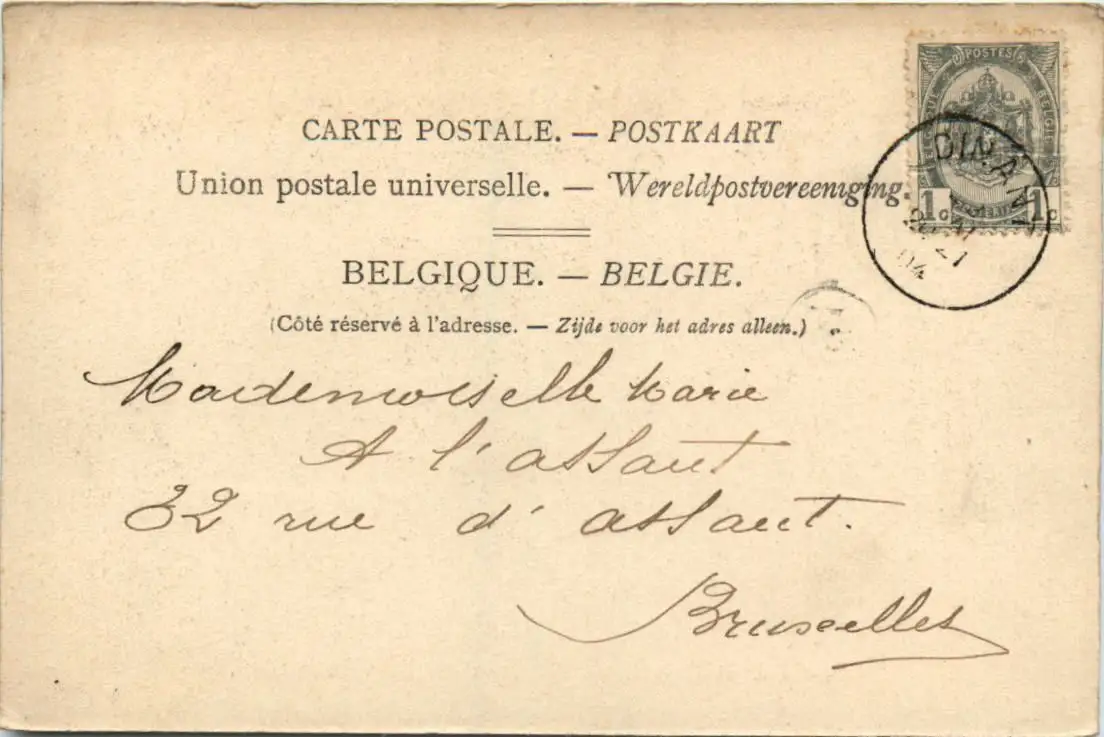 POSTES
CARTE POSTALE. — POSTKAART
Union postale universelle. — Wereldpostvereeniging
1 c 1 c
DINANT
21
04
BELGIQUE. — BELGIE.
(Côté réservé à l'adresse. — Zijde voor het adres alleen.)
Mademoiselle Marie
A l'assaut
32 rue d'assaut.
Bruxelles